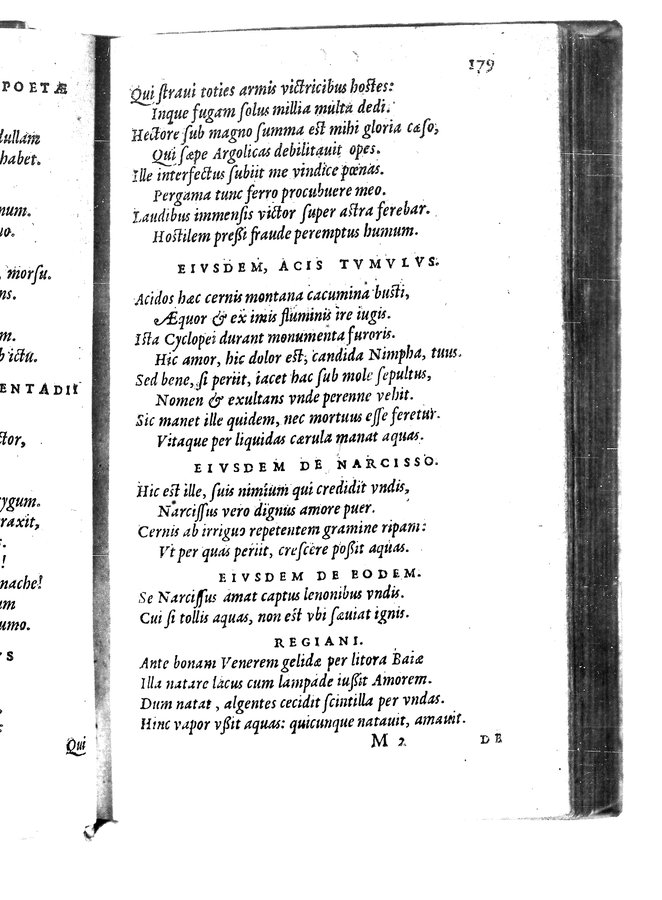 POETÆ
dullam
habet.
num.
uo.
morsu.
ns.
m.
b ictu.
ENTADII
ctor,
rygum.
raxit,
s.
!
mache!
um
umo.
VS
Qui
179
Qui straui toties armis victricibus hostes:
Inque fugam solus millia multa dedi.
Hectore sub magno summa est mihi gloria cæso,
Qui sæpe Argolicas debilitauit opes.
Ille interfectus subiit me vindice pœnas.
Pergama tunc ferro procubuere meo.
Laudibus immensis victor super astra ferebar.
Hostilem preßi fraude peremptus humum.
EIVSDEM, ACIS TVMVLVS.
Acidos hæc cernis montana cacumina busti,
Æquor & ex imis fluminis ire iugis.
Ista Cyclopei durant monumenta furoris.
Hic amor, hic dolor est, candida Nimpha, tuus.
Sed bene, si periit, iacet hac sub mole sepultus,
Nomen & exultans vnde perenne vehit.
Sic manet ille quidem, nec mortuus esse feretur.
Vitaque per liquidas cærula manat aquas.
EIVSDEM DE NARCISSO.
Hic est ille, suis nimium qui credidit vndis,
Narcissus vero dignus amore puer.
Cernis ab irriguo repetentem gramine ripam:
Vt per quas periit, crescere poßit aquas.
EIVSDEM DE EODEM.
Se Narcissus amat captus lenonibus vndis.
Cui si tollis aquas, non est vbi sæuiat ignis.
REGIANI.
Ante bonam Venerem gelidæ per litora Baiæ
Illa natare lacus cum lampade iußit Amorem.
Dum natat, algentes cecidit scintilla per vndas.
Hinc vapor vßit aquas: quicunque natauit, amauit.
M 2.
DE